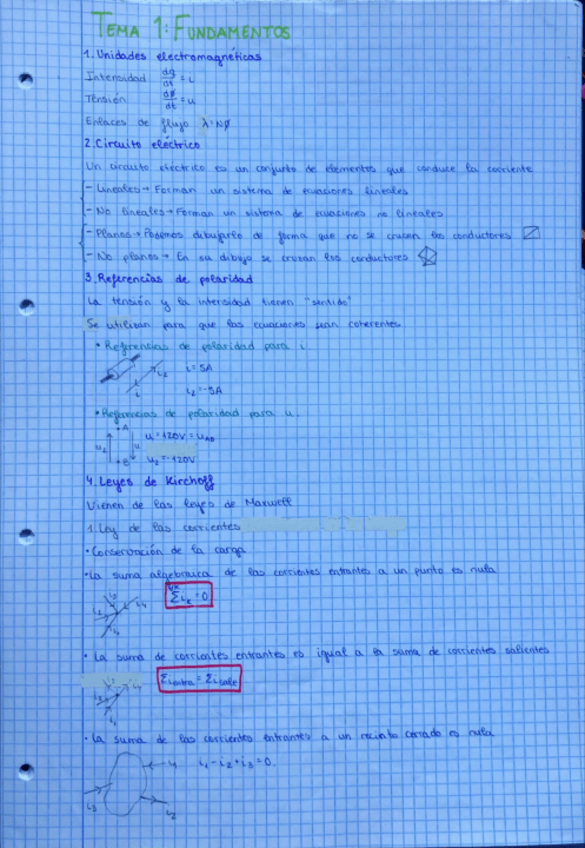 TEMA 1: FUNDAMENTOS
1. Unidades electromagnéticas
Intensidad dq/dt = i
Tensión dø/dt = u
Enlaces de flujo λ=Nø
2. Circuito eléctrico
Un circuito eléctrico es un conjunto de elementos que conduce la corriente
- Lineales → Forman un sistema de ecuaciones lineales
- No lineales → Forman un sistema de ecuaciones no lineales
- Planos → Podemos dibujarlo de forma que no se crucen los conductores
- No planos → En su dibujo se cruzan los conductores
3. Referencias de polaridad
La tensión y la intensidad tienen "sentido"
Se utilizan para que las ecuaciones sean coherentes
• Referencias de polaridad para i
i = 5A
i₂
i
i₂ = -5A
• Referencias de polaridad para u.
A
u = 120V = uAB
u₂
u
B
u₂ = -120V
4. Leyes de Kirchoff
Vienen de las leyes de Maxwell
1. Ley de las corrientes
• Conservación de la carga
• La suma algebraica de las corrientes entrantes a un punto es nula
Σiₖ = 0
• La suma de corrientes entrantes es igual a la suma de corrientes salientes
Σientra = Σisale
• La suma de las corrientes entrantes a un recinto cerrado es nula
i₁ i₁ - i₂ + i₃ = 0.
i₃
i₂